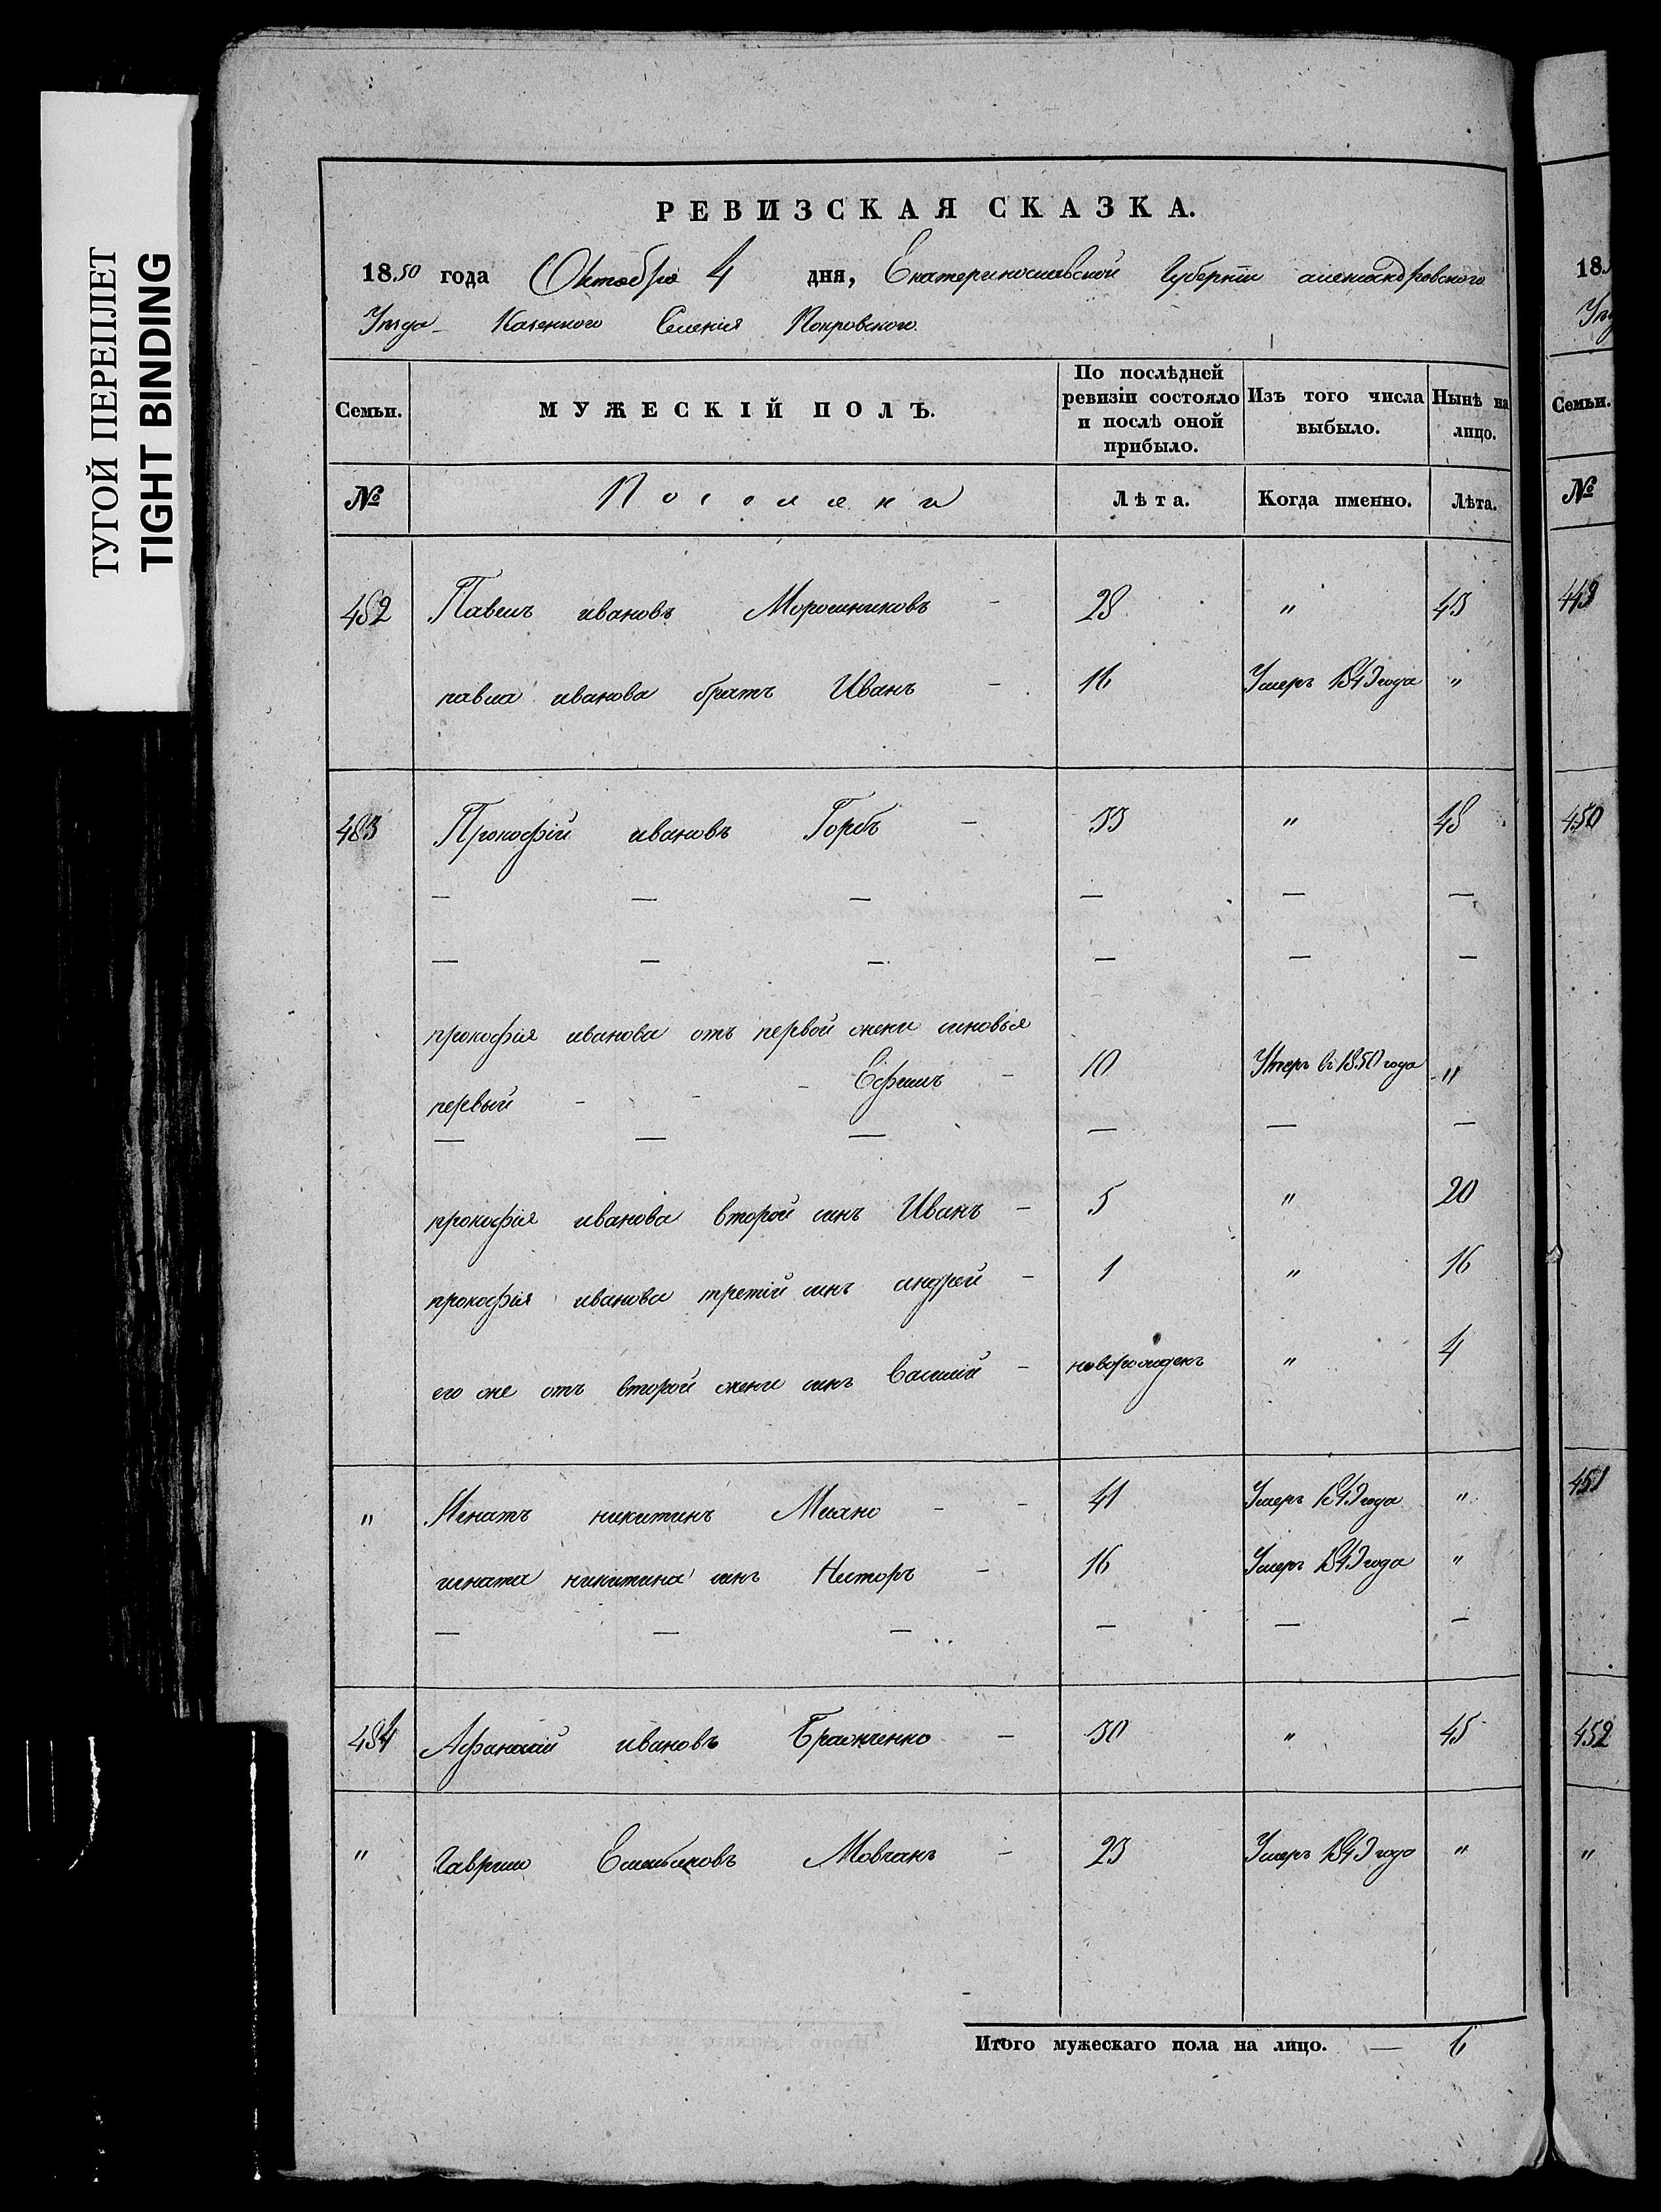 ТУГОЙ ПЕРЕПЛЕТ
TIGHT BINDING
РЕВИЗСКАЯ СКАЗКА.
1850 года Октября 4 дня, Екатеринославской Губерніи александровского
Уезда Казенного Селенія Покровского.
Семьи. МУЖЕСКІЙ ПОЛЪ. По послѣдней ревизіи состояло и послѣ оной прибыло. Изъ того числа выбыло. Нынѣ на лицо.
№ Поселяни Лѣта. Когда именно. Лѣта.
482 Павелъ ивановъ Морошниковъ - 28 " 43
павла иванова братъ Иванъ - 16 Умеръ 1843 года "
483 Прокофій ивановъ Горбъ - 33 " 48
— — — — — —
— — — — — —
прокофія иванова отъ первой жени синовья
первый - - - Ефимъ - 10 Умеръ въ 1850 года "
— — — — — —
прокофія иванова второй синъ Иванъ - 5 " 20
прокофія иванова третій синъ андрей - 1 " 16
его же отъ второй жени синъ Василій - новорожденъ " 4
" Игнатъ никитинъ - - 41 Умеръ 1843 года "
игната никитина синъ Несторъ - 16 Умеръ 1843 года "
— — — — — —
484 Афанасій ивановъ Бражченко - 30 " 45
" гаврило Емельяновъ Мовчанъ - 23 Умеръ 1843 года "
Итого мужескаго пола на лицо. — 6
18
Семьи.
№
449
450
451
452
"